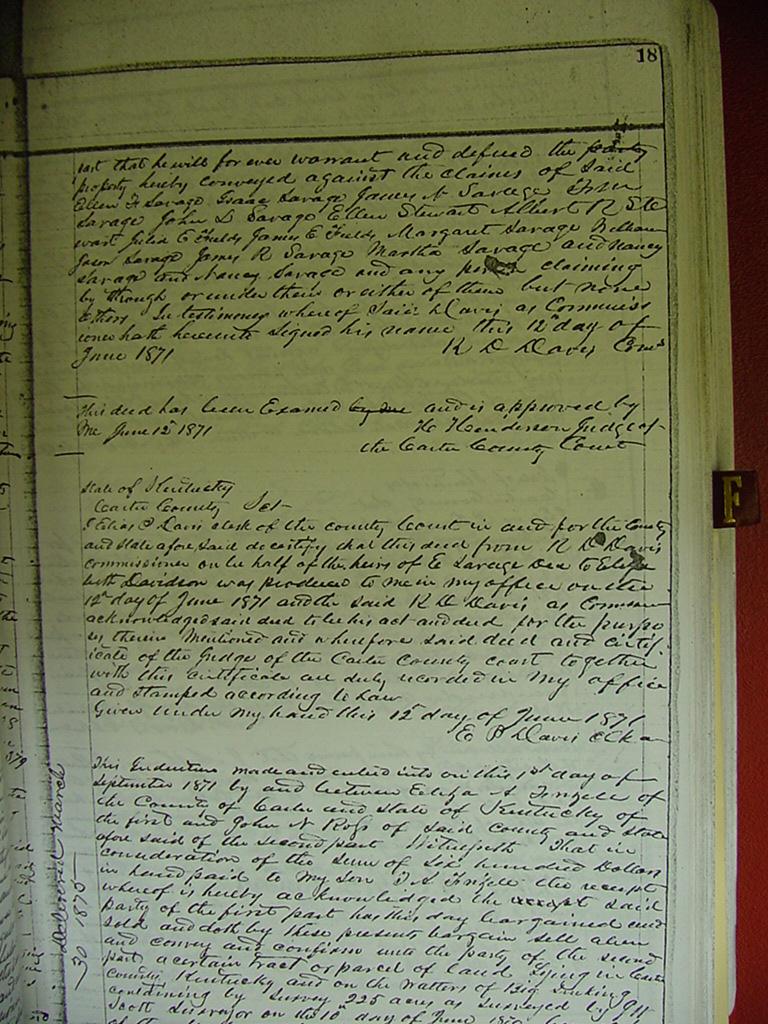 18
part that he will for ever warrant and defend the party
property hereby conveyed against the claims of said
Ellen F Savage Isaac Savage James N Savage
Savage John D Savage Ellen Stewart Albert R Ste
wart Julia E Fields James E Fields Margaret Savage William
Jason Savage James R Savage Martha Savage and Nancy
Savage and Nancy Savage and any person claiming
by through or under them or either of them but none
others In testimony where of Said Davis as Commiss
ioner hath hereunto signed his name this 12th day of
June 1871 K D Davis Comr
This deed has been Examed by me and is approved by
me June 12th 1871 H Henderson Judge of
the Carter County Court
State of Kentucky
Carter County Sct
I Elias P Davis clerk of the county Court in and for the County
and state afore said do certify that this deed from K D Davis
commissioner on be half of the heirs of E Savage Dec to
beth Davidson was produced to me in my office on the
12th day of June 1871 and the said K D Davis as Commr
acknowledged said deed to be his act and deed for the purpo
ses therein Mentioned and wherefore said deed and certif
icate of the Judge of the Carter County court together
with this certificate are duly recorded in My office
and stamped according to Law
Given under My hand this 12th day of June 1871
E P Davis Clk
This Indenture made and entered into on this 1st day of
September 1871 by and between Eliza A of
the County of Carter and State of Kentucky of
the first and John N Ross of said County and State
afore said of the second part Witnesseth That in
consideration of the sum of Six hundred Dollars
in hand paid to My son J A the receipt
whereof is hereby acknowledged the except said
party of the first part has this day bargained and
sold and doth by these presents bargain sell alien
and convey and confirm unto the party of the second
part a certain tract or parcel of land lying in Carter
County Kentucky and on the Watters of Big Sinking
containing by survey 225 acres as surveyed by
Scott Surveyor on the 10th day of June
Delivered March
30 1875
F